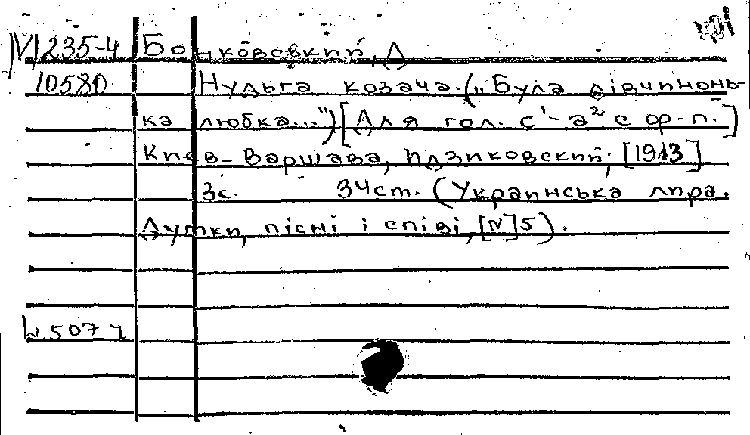 М 235-4 Бонковский, Д
10580 Нудьга козача. („Була дівчинонь-
ка любка...") [Для гол. c¹-a² с ф-п.]
Киев-Варшава, Идзиковский, [1913]
3с. 34ст. (Украинська лира.
Думки, пісні і співі, [N]5).
507